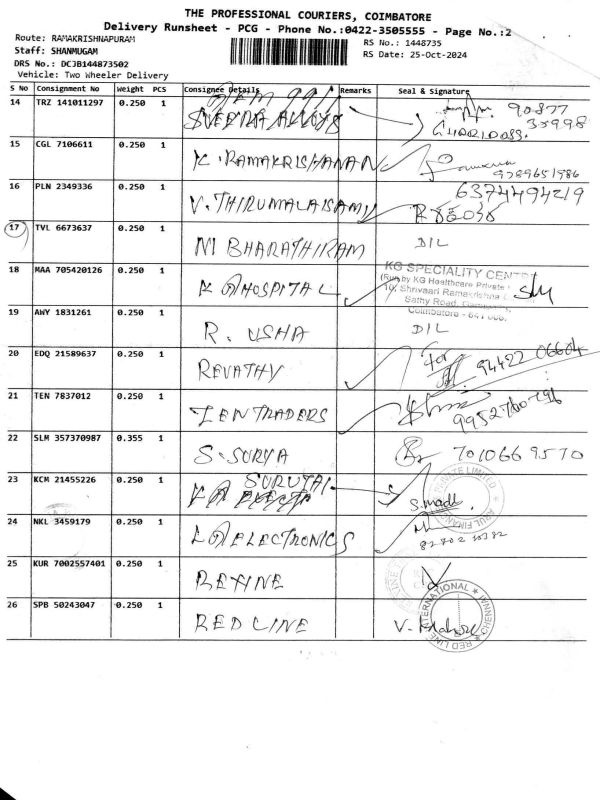 THE PROFESSIONAL COURIERS, COIMBATORE
Delivery Runsheet - PCG - Phone No.:0422-3505555 - Page No.:2
Route: RAMAKRISHNAPURAM
RS No.: 1448735
Staff: SHANMUGAM
RS Date: 25-Oct-2024
DRS No.: DCJB144873502
Vehicle: Two Wheeler Delivery
S No Consignment No Weight PCS Consignee Details Remarks Seal & Signature
14 TRZ 141011297 0.250 1 90877
35998
15 CGL 7106611 0.250 1 K. RAMAKRISHANAN
9789651986
16 PLN 2349336 0.250 1 V. THIRUMALAISAMY 6374494219
17 TVL 6673637 0.250 1 M BHARATHIRAM DIL
18 MAA 705420126 0.250 1 K G HOSPITAL KG SPECIALITY
(Run by KG Healthcare Private
10, Shrivaari Ramakrishna
Sathy Road,
Coimbatore - 641 006.
19 AWY 1831261 0.250 1 R. USHA DIL
20 EDQ 21589637 0.250 1 REVATHY For 94422 06604
21 TEN 7837012 0.250 1 ZEN TRADERS 9952760796
22 SLM 357370987 0.355 1 S. SURYA 7010669570
23 KCM 21455226 0.250 1
24 NKL 3459179 0.250 1 L G ELECTRONICS
25 KUR 7002557401 0.250 1 REFINE
26 SPB 50243047 0.250 1 RED LINE
RED LINE INTERNATIONAL CHENNAI